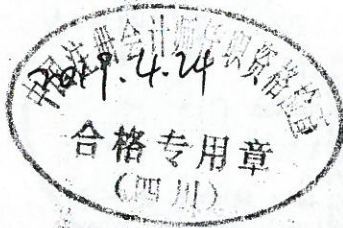 中国注册会计师任职资格检查
2019.4.24
合格专用章
（四川）